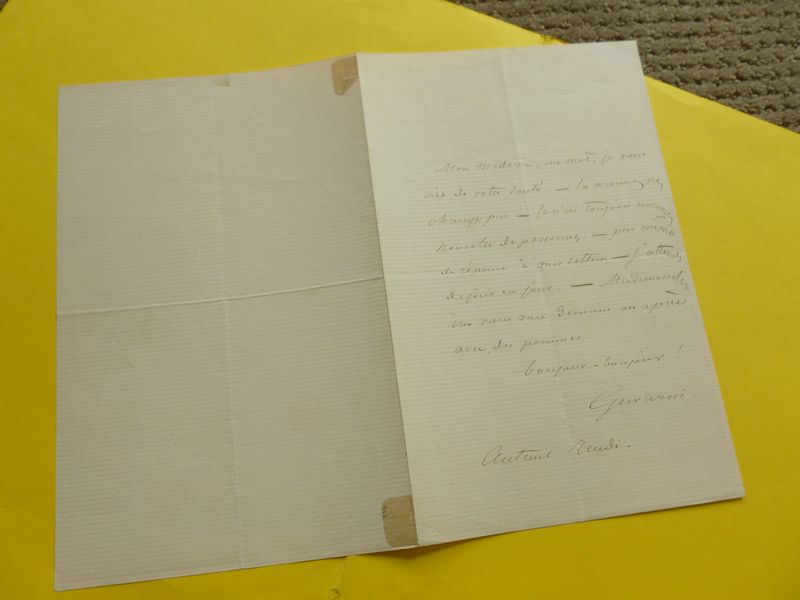 Mon Médecin, un mot, je vous
prie de votre santé. — la mienne ne
change pas — je suis toujours
nouvelles de personne — pas même
de réponse à mes lettres — j'attends
de jour en jour. — Mademoiselle
ira vous voir demain ou après
avec des pommes.
bonjour - bonjour !
Gavarni.
Auteuil Jeudi.
2